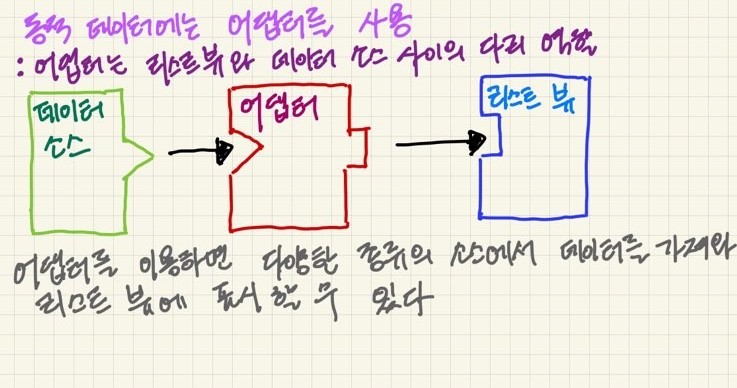 동적 데이터에는 어댑터를 사용
: 어댑터는 리스트뷰와 데이터 소스 사이의 다리 역할
데이터
소스
어댑터
리스트 뷰
어댑터를 이용하면 다양한 종류의 소스에서 데이터를 가져와
리스트 뷰에 표시 할 수 있다